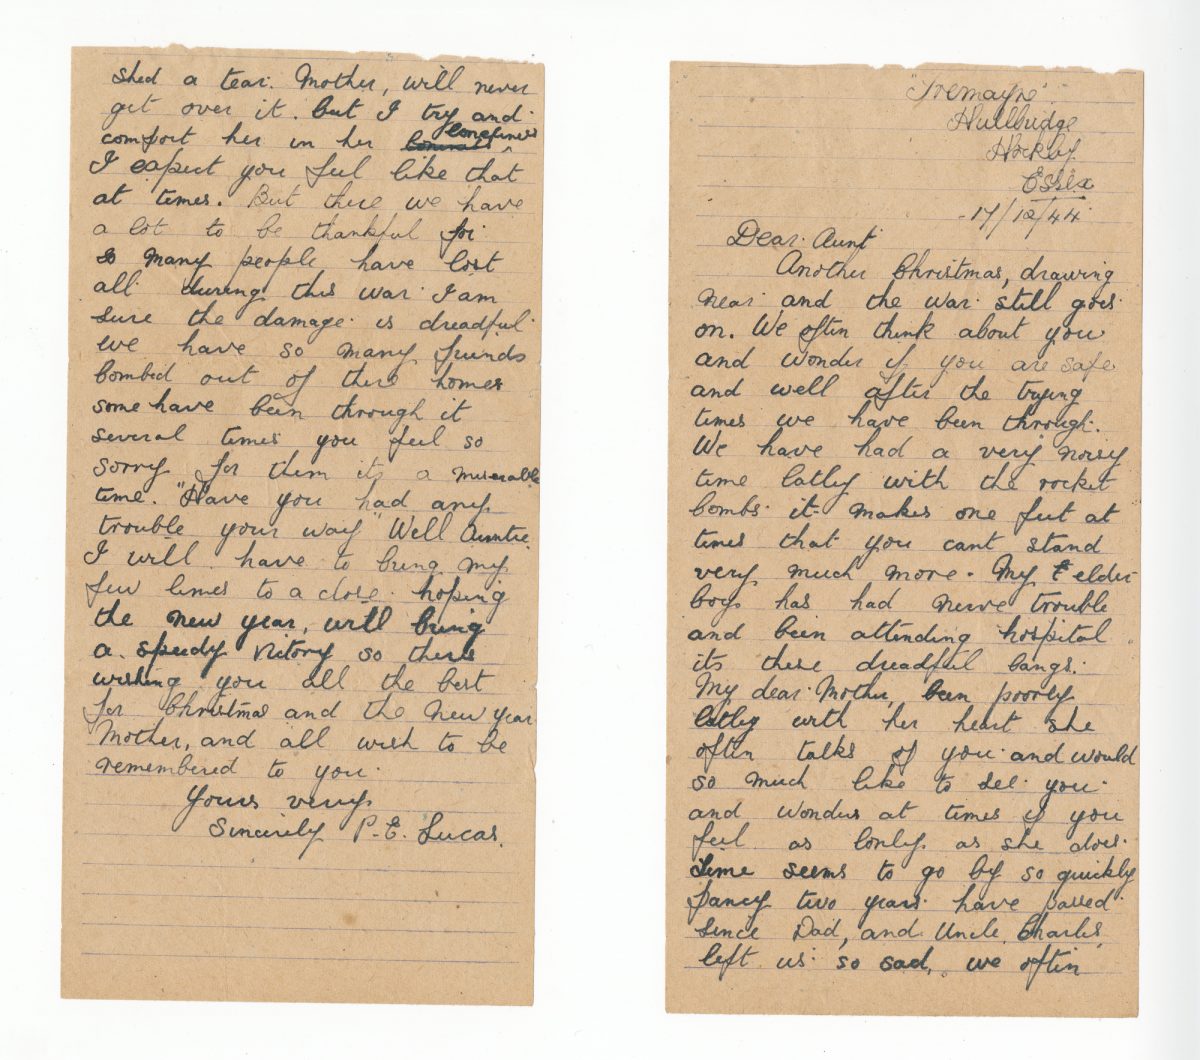 "Tremayne"
Hullbridge
Hockley
Essex
17/12/44
Dear Aunt
Another Christmas, drawing
near and the war still goes
on. We often think about you
and wonder if you are safe
and well after the trying
times we have been through.
We have had a very noisy
time latly with the rocket
bombs it makes one feel at
times that you cant stand
very much more. My elder
boy has had nerve trouble
and been attending hospital
its these dreadful bangs.
My dear Mother, been poorly
latly with her heart she
often talks of you and would
so much like to see you
and wonders at times if you
feel as lonly as she does.
Time seems to go by so quickly
fancy two years have passed
since Dad, and Uncle Charles,
left us so sad, we often
shed a tear. Mother, will never
get over it. but I try and
comfort her in her loneliness
I expect you feel like that
at times. But there we have
a lot to be thankful for
so many people have lost
all during this war I am
sure the damage is dreadful
we have so many friends
bombed out of there homes
some have been through it
several times you feel so
sorry for them its a miserable
time. "Have you had any
trouble your way" Well Auntie
I will have to bring my
few lines to a close hoping
the new year, will bring
a speedy Vitory so theres
wishing you all the best
for Christmas and the New Year
Mother, and all wish to be
remembered to you.
Yours very
Sincerely P.E. Lucas.